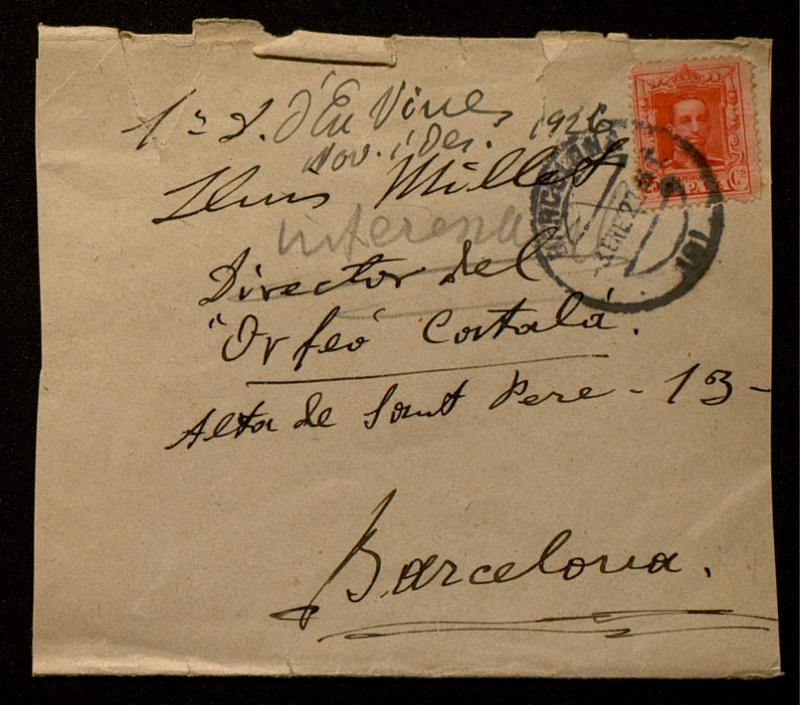 d'En Vines
Nov. i Des. 1926
Lluis Millet
interesa
Director del
"Orfeó Catalá.
Alta de Sant Pere - 13 -
Barcelona.
BARCELONA
3 ENE 27